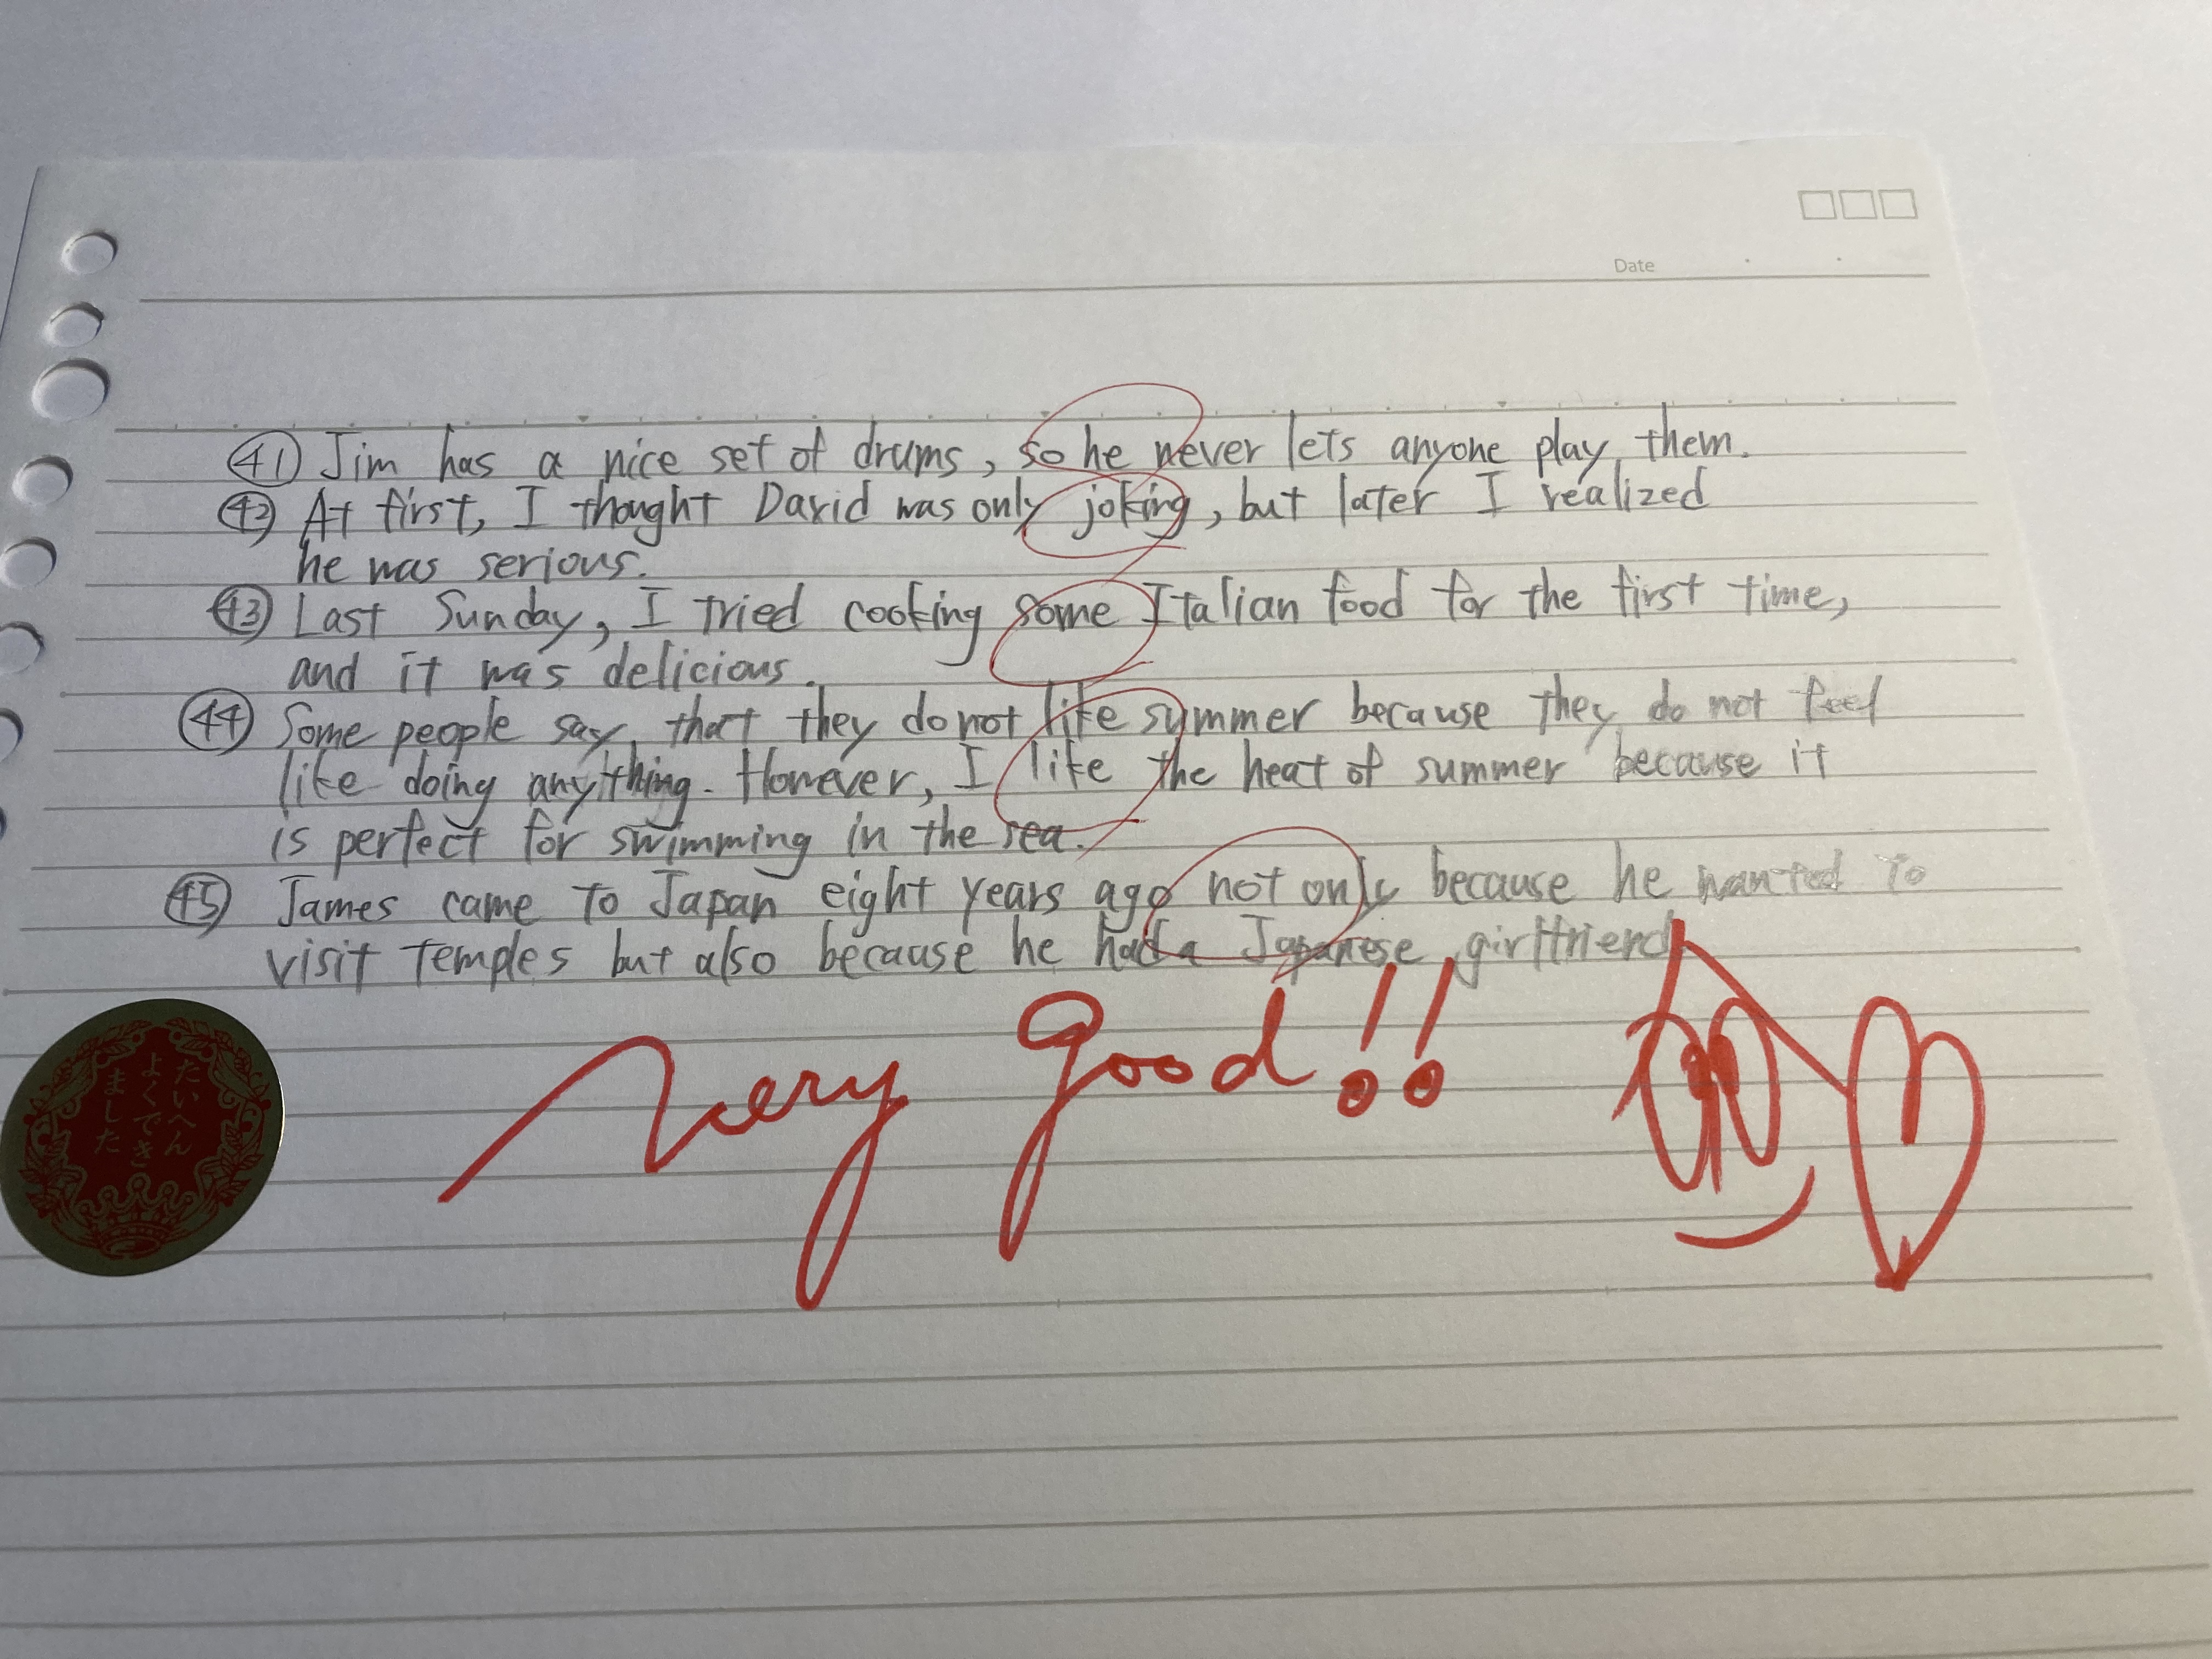 Date
㊶ Jim has a nice set of drums, so he never lets anyone play them.
㊷ At first, I thought David was only joking, but later I realized
he was serious.
㊸ Last Sunday, I tried cooking some Italian food for the first time,
and it was delicious.
㊹ Some people say that they do not like summer because they do not feel
like doing anything. However, I like the heat of summer because it
is perfect for swimming in the sea.
㊺ James came to Japan eight years ago not only because he wanted to
visit temples but also because he had a Japanese girlfriend
very good!!
たいへん
よくでき
ました